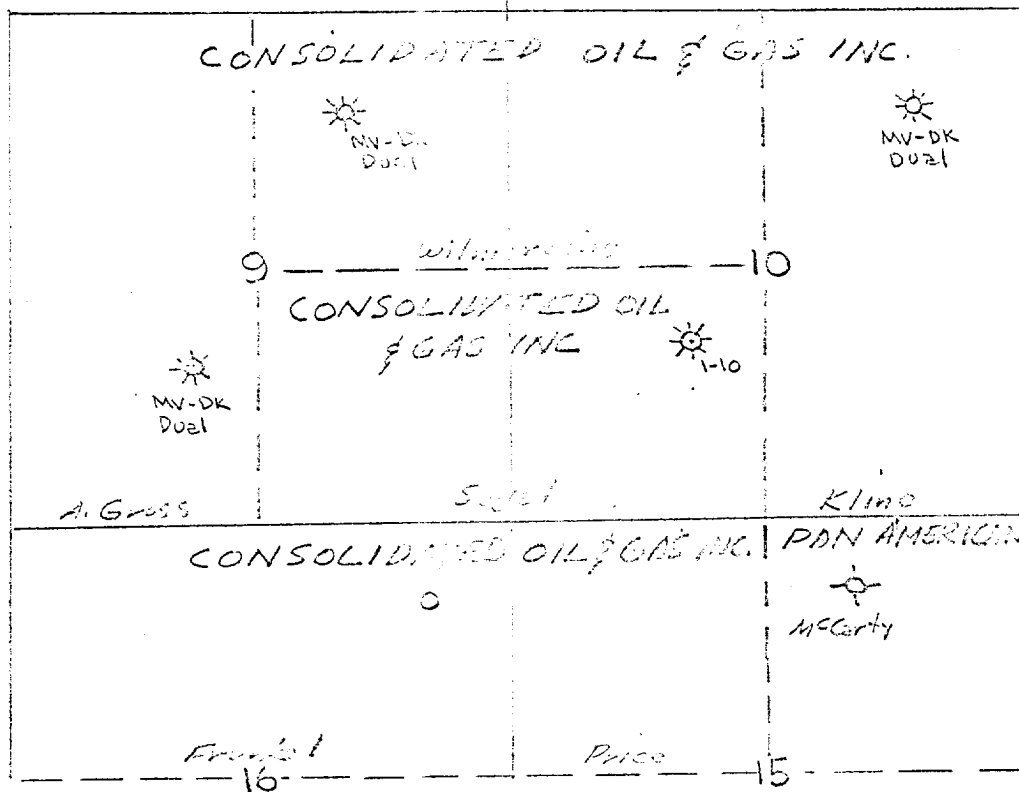 CONSOLIDATED OIL & GAS INC.
MV-DK
Dual
MV-DK
Dual
9
10
CONSOLIDATED OIL
& GAS INC
1-10
MV-DK
Dual
A. Gross
Kline
CONSOLIDATED OIL & GAS INC.
PAN AMERICAN
McCarty
Price
16
15